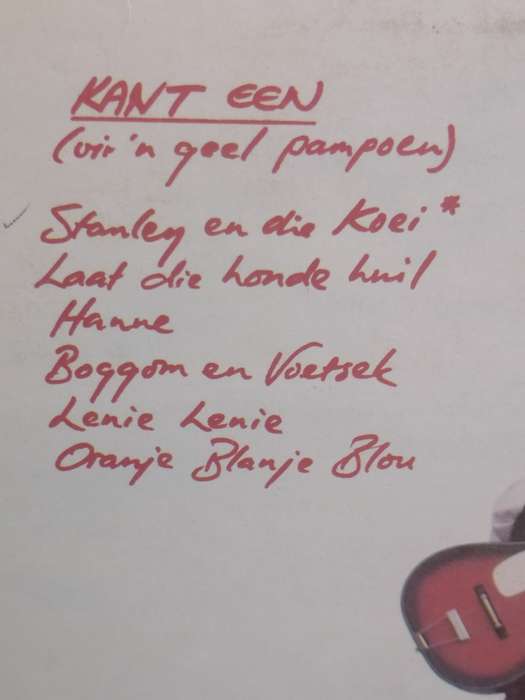 KANT EEN
(vir 'n geel pampoen)
Stanley en die Koei *
Laat die honde huil
Hanne
Boggom en Voetsek
Lenie Lenie
Oranje Blanje Blou